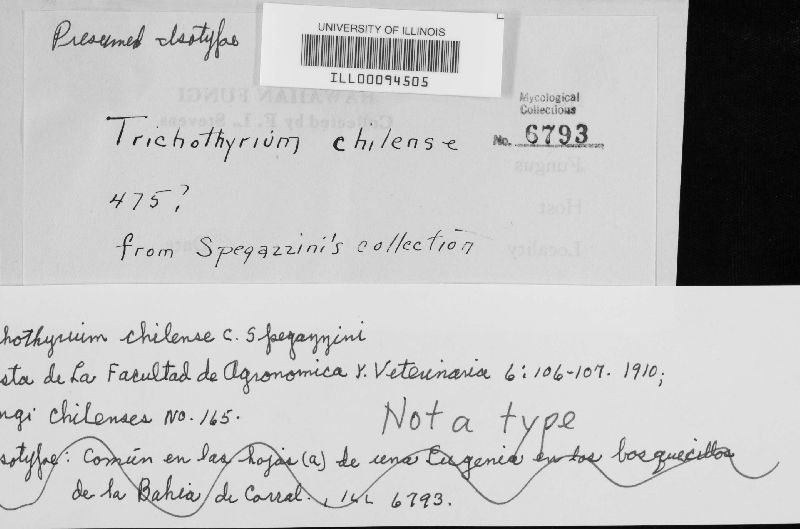 Presumed Isotype
UNIVERSITY OF ILLINOIS
ILL00094505
Mycological
Collections
No. 6793
Trichothyrium chilense
475?
from Spegazzini's collection
HAWAIIAN FUNGI
Collected by F. L. Stevens
Fungus
Host
Locality
hothyrium chilense C. Spegazzini
sta de La Facultad de Agronomica Y. Veterinaria 6: 106-107. 1910;
ngi Chilenses No. 165.
Not a type
sotype: Común en las hojas (a) de una Eugenia en los bosquecillos
de la Bahia de Corral., ILL 6793.